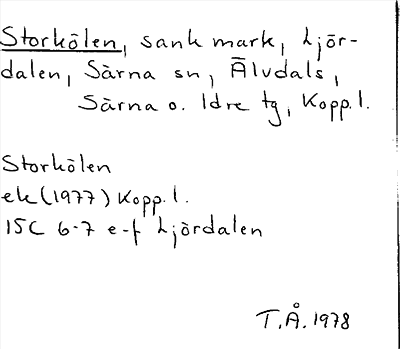 Storkölen, sank mark, Ljör-
dalen, Särna sn, Älvdals,
Särna o. Idre tg, Kopp. l.
Storkölen
ek (1977) Kopp. l.
15C 6-7 e-f Ljördalen
T.Å. 1978